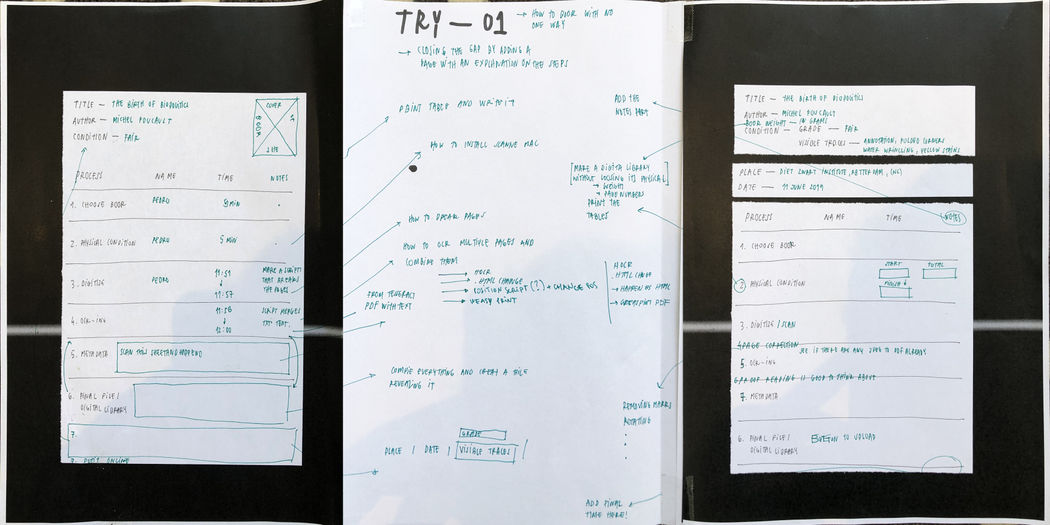 TITLE — THE BIRTH OF BIOPOLITICS
AUTHOR — MICHEL FOUCAULT
CONDITION — FAIR
COVER
PROCESS NAME TIME NOTES
1. CHOOSE BOOK PEDRO 8 MIN
2. PHYSICAL CONDITION PEDRO 5 MIN
3. DIGITISE PEDRO 11:51
11:57
MAKE A SCRIPT
THAT BREAKS
THE PAGES
4. OCR-ING 11:58
12:00
SCRIPT MERGES
TXT TEXT.
5. METADATA SCAN THIS SHEET AND APPEND
6. FINAL FILE/
DIGITAL LIBRARY
7.
TRY — 01
→ HOW TO BOOK WITH NO
ONE WAY
→ CLOSING THE GAP BY ADDING A
PAGE WITH AN EXPLANATION ON THE STEPS
PRINT TABLE AND WRITE IT
ADD THE
NOTES PART
HOW TO INSTALL SCANNE MAC
[MAKE A DIGITAL LIBRARY
WITHOUT LOSING ITS PHYSICAL]
→ WEIGHT
→ PAGE NUMBERS
PRINT THE
TABLES
HOW TO BREAK PAGES
HOW TO OCR MULTIPLE PAGES AND
COMBINE THEM
HOCR
.HTML CHANGE
POSITION SCRIPT (?) + CHANGE PGS
WEASY PRINT
FROM TESERACT
PDF WITH TEXT
HOCR
.HTML CHANGE
COMBINE EVERYTHING AND CREAT A FILE
REVEALING IT
REMOVING MARKS
ROTATING
GRADE
PLACE / DATE / VISIBLE TRACES /
ADD FINAL
TIME HERE!
TITLE — THE BIRTH OF BIOPOLITICS
AUTHOR — MICHEL FOUCAULT
BOOK WEIGHT — IN GRAMS
CONDITION — GRADE — FAIR
VISIBLE TRACES — ANNOTATION, FOLDED CORNERS
WATER WRINKLING, YELLOW STAINS
PLACE — PIET ZWART INSTITUTE, ROTTERDAM, (NL)
DATE — 11 JUNE 2019
PROCESS NAME TIME NOTES
1. CHOOSE BOOK
START TOTAL
2 PHYSICAL CONDITION FINISH
3. DIGITISE / SCAN
4. PAGE CORRECTION SEE IF THERE ARE ANY JPEG TO PDF ALREADY
5. OCR-ING
6. PROOF READING IS GOOD TO THINK ABOUT
7. METADATA
6. FINAL FILE / BUTTON TO UPLOAD
DIGITAL LIBRARY